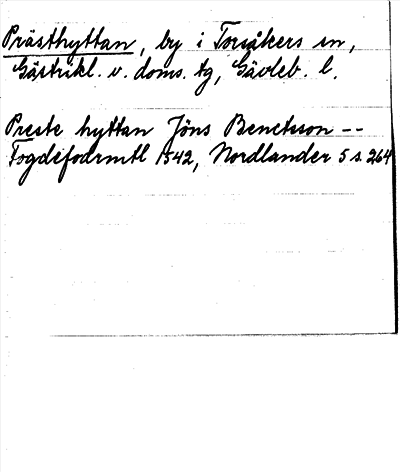 Prästhyttan, by i Torsåkers sn,
Gästrikl. v. doms. tg, Gävleb. l.
Preste hyttan Jöns Benctsson --
Fogdefodrmtl 1542, Nordlander 5 s. 264